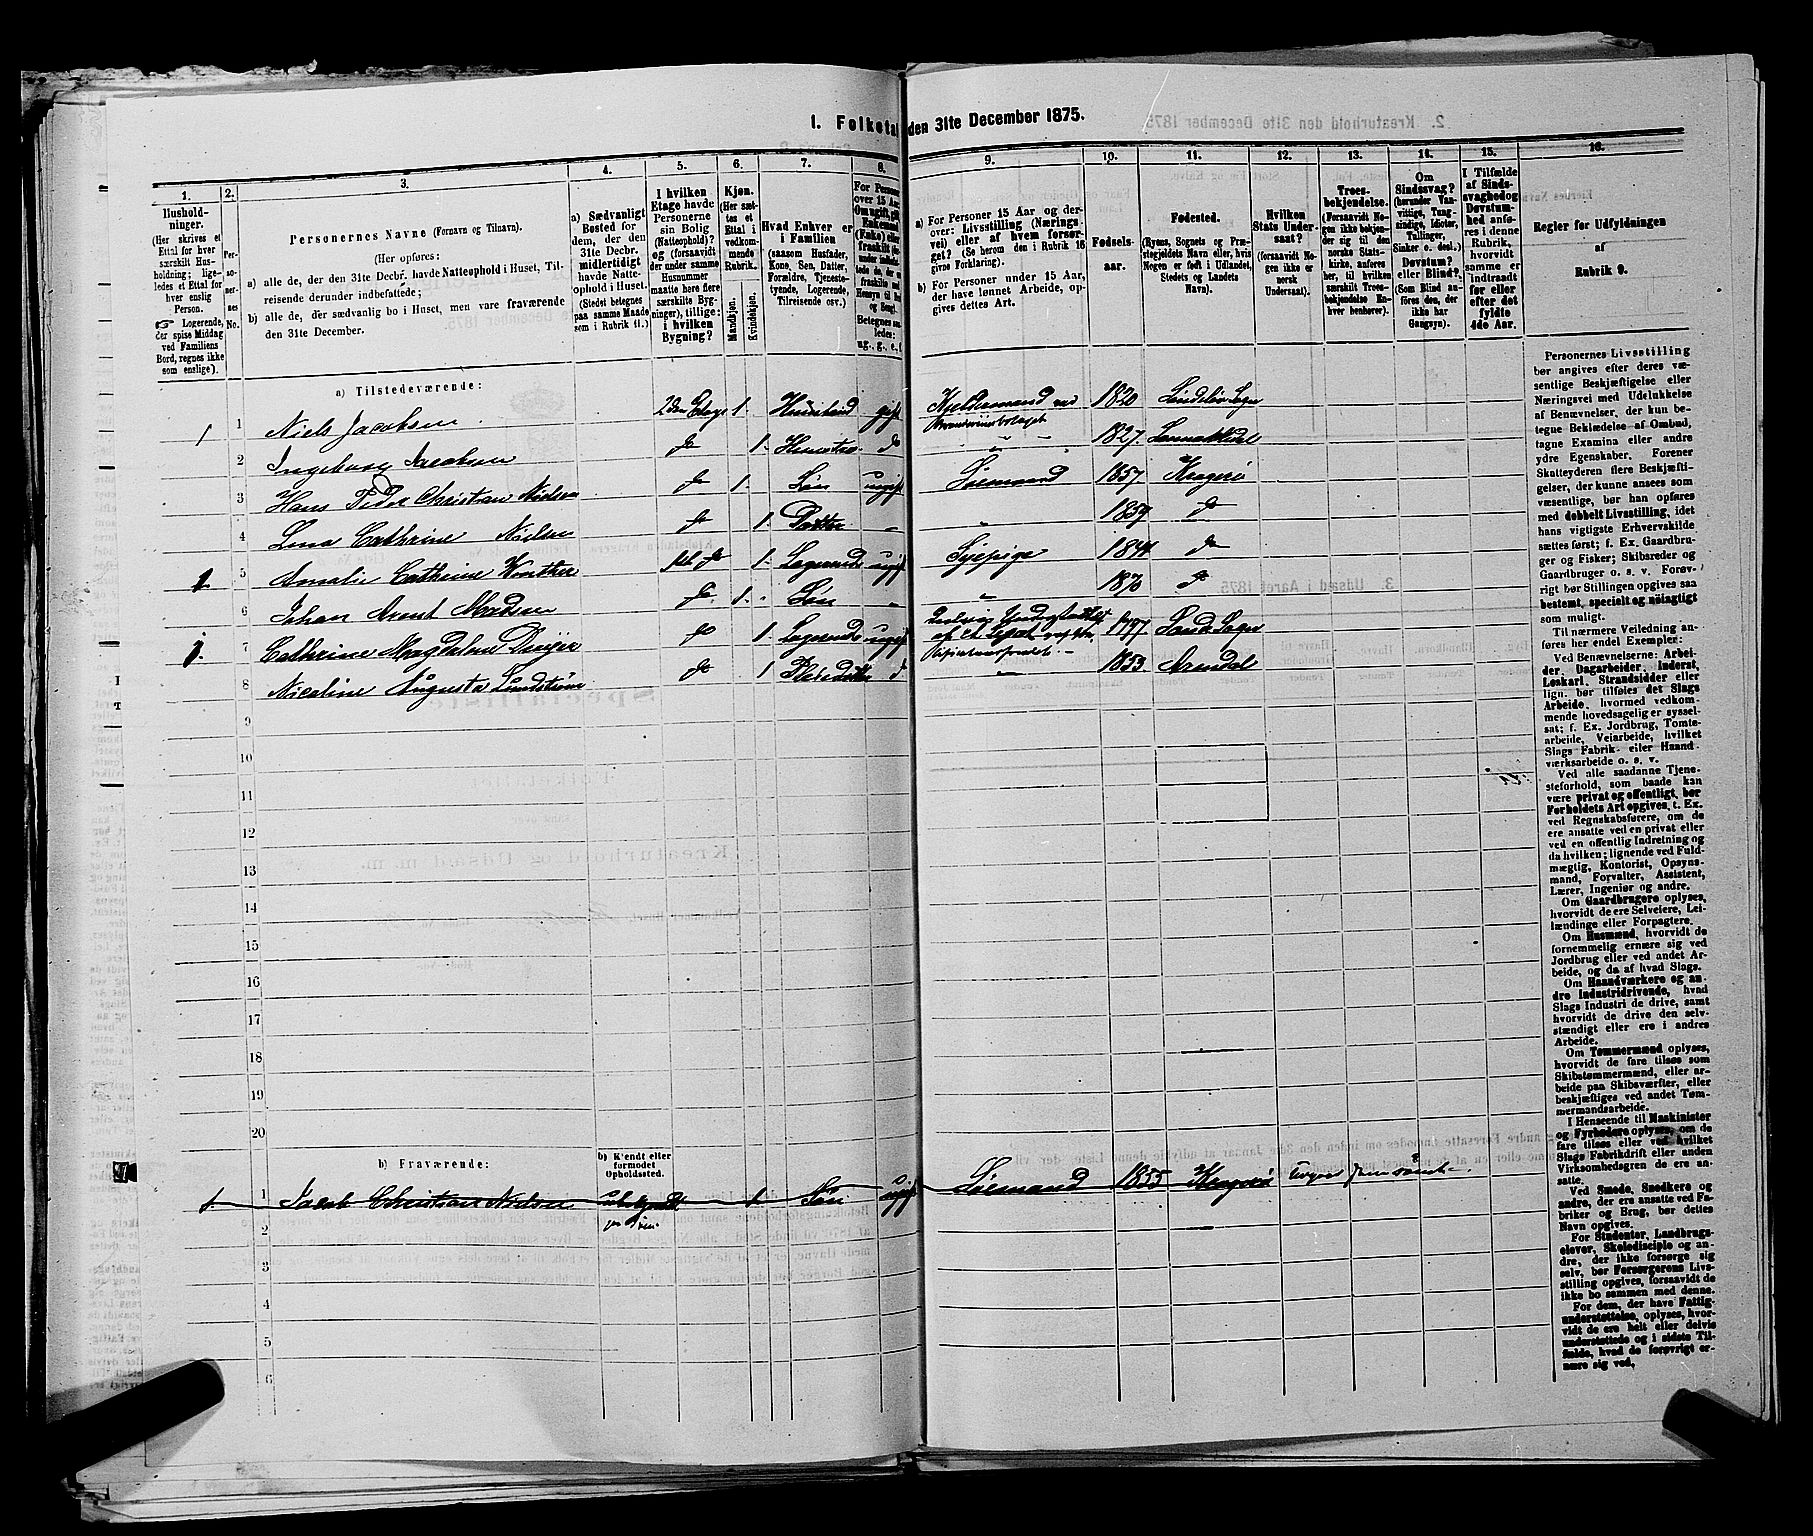 I. Folketæ
den 31te December 1875.
1. 2. 3. 4. 5. 6. 7. 8. 9. 10. 11. 12. 13. 14. 15. 16.
Hushold-
ninger.
(Her skrives et
Ettal for hver
særskilt Hus-
holdning; lige-
ledes et Ettal for
hver enslig
Person.
☞ Logerende,
der spise Middag
ved Familiens
Bord, regnes ikke
som enslige).
Per-
so-
ner-
nes
No.
Personernes Navne (Fornavn og Tilnavn).
(Her opføres:
a) alle de, der den 31te Decbr. havde Natteophold i Huset, Til-
reisende derunder indbefattede;
b) alle de, der sædvanlig bo i Huset, men vare fraværende
den 31te December.
a) Sædvanligt
Bosted for
dem, der den
31te Decbr.
midlertidigt
havde Natte-
ophold i Huset.
(Stedet betegnes
paa samme Maade
som i Rubrik 11.)
I hvilken
Etage havde
Personerne
sin Bolig
(Natteophold)?
og (forsaavidt
der under samme
Husnummer
maatte høre flere
særskilte Byg-
ninger), tillige:
i hvilken
Bygning?
Kjøn.
(Her sæt-
tes et
Ettal i
vedkom-
mende
Rubrik.
Mandkjøn.
Kvindekjøn.
Hvad Enhver er
i Familien
(saasom Husfader,
Kone, Søn, Datter,
Forældre, Tjeneste-
tyende, Logerende,
Tilreisende osv.)
For Persone
over 15 Aar
Om ugift, gift
Enkemand
(Enke) eller
fraskilt
Betegnes saa-
ledes:
ug., g., e., f.
a) For Personer 15 Aar og der-
over: Livsstilling (Nærings-
vei) eller af hvem forsør-
get? (Se herom den i Rubrik 16
givne Forklaring).
b) For Personer under 15 Aar,
der have lønnet Arbeide, op-
gives dettes Art.
Fødsels-
aar.
Fødested.
(Byens, Sognets og Præ-
stegjeldets Navn, eller, hvis
Nogen er født i Udlandet,
Stedets og Landets
Navn).
Hvilken
Stats Under-
saat?
(forsaavidt No-
gen ikke er
norsk
Undersaat).
Troes-
bekjendelse.
(Forsaavidt No-
gen ikke bekjen-
der sig til den
norske Stats-
kirke, anføres
her, til hvilken
særskilt Troes-
bekjendelse En-
hver henhører).
Om
Sindssvag?
(herunder Van-
vittige, Tung-
sindige, Idioter,
Tullinger,
Sinker o. desl.)
Døvstum?
eller Blind?
(Som Blind an-
føres den, der
ikke har
Gangsyn).
I Tilfælde
af Sinds-
svaghed og
Døvstum-
hed anfø-
res i denne
Rubrik,
hvorvidt
samme er
indtraadt
før eller
efter det
fyldte
4de Aar.
Regler for Udfyldningen
af
Rubrik 9.
a) Tilstedeværende:
1 1 Niels Jacobsen 2den Etage 1. Huusfad gift Kjeldermand ved 1820 Sandelöv Sogn
2 Ingeborg Jacobsen do 1. Huusfru do " 1827. Sannökedal
3 Hans Peder Christian Nielsen do 1. Søn ugift Sømand 1857. Kragerö
4 Lina Cathrine Nielsen do 1. Datter " " 1859 do
1 5 Amalie Cathrine do 1. Logerende ugift Sypige do
6 Johan Arent Madsen do. 1. Søn " " 1870 do
1. 7 Cathrine Magdalene do 1. Logerende ugift 1797. Sogn
8 Nicoline Augusta Lundstrøm do 1 do " 1853. Arendal
9
10
11
12
13
14
15
16
17
18
19
20
b) Fraværende:
b) Kjendt eller
formodet
Opholdssted.
1. 1 Jacob Christian Nielsen ubekjendt 1 Søn ugift Sømand 1855 Kragerö
2
3
4
5
6
Personernes Livsstilling
bør angives efter deres væ-
sentlige Beskjæftigelse eller
Næringsvei med Udelukkelse
af Benævnelser, der kun be-
tegne Beklædelse af Ombud,
tagne Examina eller andre
ydre Egenskaber. Forener
Skatteyderen flere Beskjæfti-
gelser, der kunne ansees som
væsentlige, bør han opføres
med dobbelt Livsstilling, idet
hans vigtigste Erhvervskilde
sættes først; f. Ex. Gaardbru-
ger og Fisker; Skibsreder og
Gaardbruger o. s. v. Forøv-
rigt bør Stillingen opgives saa
bestemt, specielt og nøiagtigt
som muligt.
Til nærmere Veiledning an-
føres her endel Exempler:
Ved Benævnelserne: Arbei-
der, Dagarbeider, Inderst,
Løskarl, Strandsidder eller
lign. bør tilføies det Slags
Arbeide, hvormed vedkom-
mende hovedsagelig er syssel-
sat; f. Ex. Jordbrug, Tomte-
arbeide, Veiarbeide, hvilket
Slags Fabrik- eller Haand-
værksarbeide o. s. v.
Ved alle saadanne Tjene-
steforhold, som baade kan
være privat og offentligt, bør
Forholdets Art opgives, t. Ex.
ved Regnskabsførere, om de
ere ansatte ved en privat eller
ved en offentlig Indretning og
da hvilken; lignende ved Fuld-
mægtig, Kontorist, Opsyns-
mand, Forvalter, Assistent,
Lærer, Ingeniør og andre.
Om Gaardbrugere oplyses,
hvorvidt de ere Selveiere, Lei-
lændinge eller Forpagtere.
Om Husmænd, hvorvidt de
fornemmelig ernære sig ved
Jordbrug eller ved andet Ar-
beide, og da af hvad Slags.
Om Haandværkere og an-
dre Industridrivende, hvad
Slags Industri de drive, samt
hvorvidt de drive den selv-
stændigt eller ere i andres
Arbeide.
Om Tømmermænd oplyses,
hvorvidt de fare tilsøs som
Skibstømmermænd, eller ar-
beide paa Skibsværfter, eller
beskjæftiges ved andet Tøm-
mermandsarbeide.
I Henseende til Maskinister
og Fyrbødere oplyses, om de
fare tilsøs eller ved hvilket
Slags Fabrikdrift eller anden
Virksomhedsgren de ere an-
satte.
Ved Smede, Snedkere og
andre, der ere ansatte ved Fa-
briker og Brug, bør dettes
Navn opgives.
For Studenter, Landbrugs-
elever, Skoledisciple og an-
dre, der ikke forsørge sig
selv, bør Forsørgerens Livs-
stilling opgives, forsaavidt de
ikke bo sammen med denne.
For dem, der have Fattig-
understøttelse, oplyses, hvor-
vidt de ere helt eller delvis
understøttede og i sidste Til-
fælde, hvad de forøvrigt er-
nære sig ved.